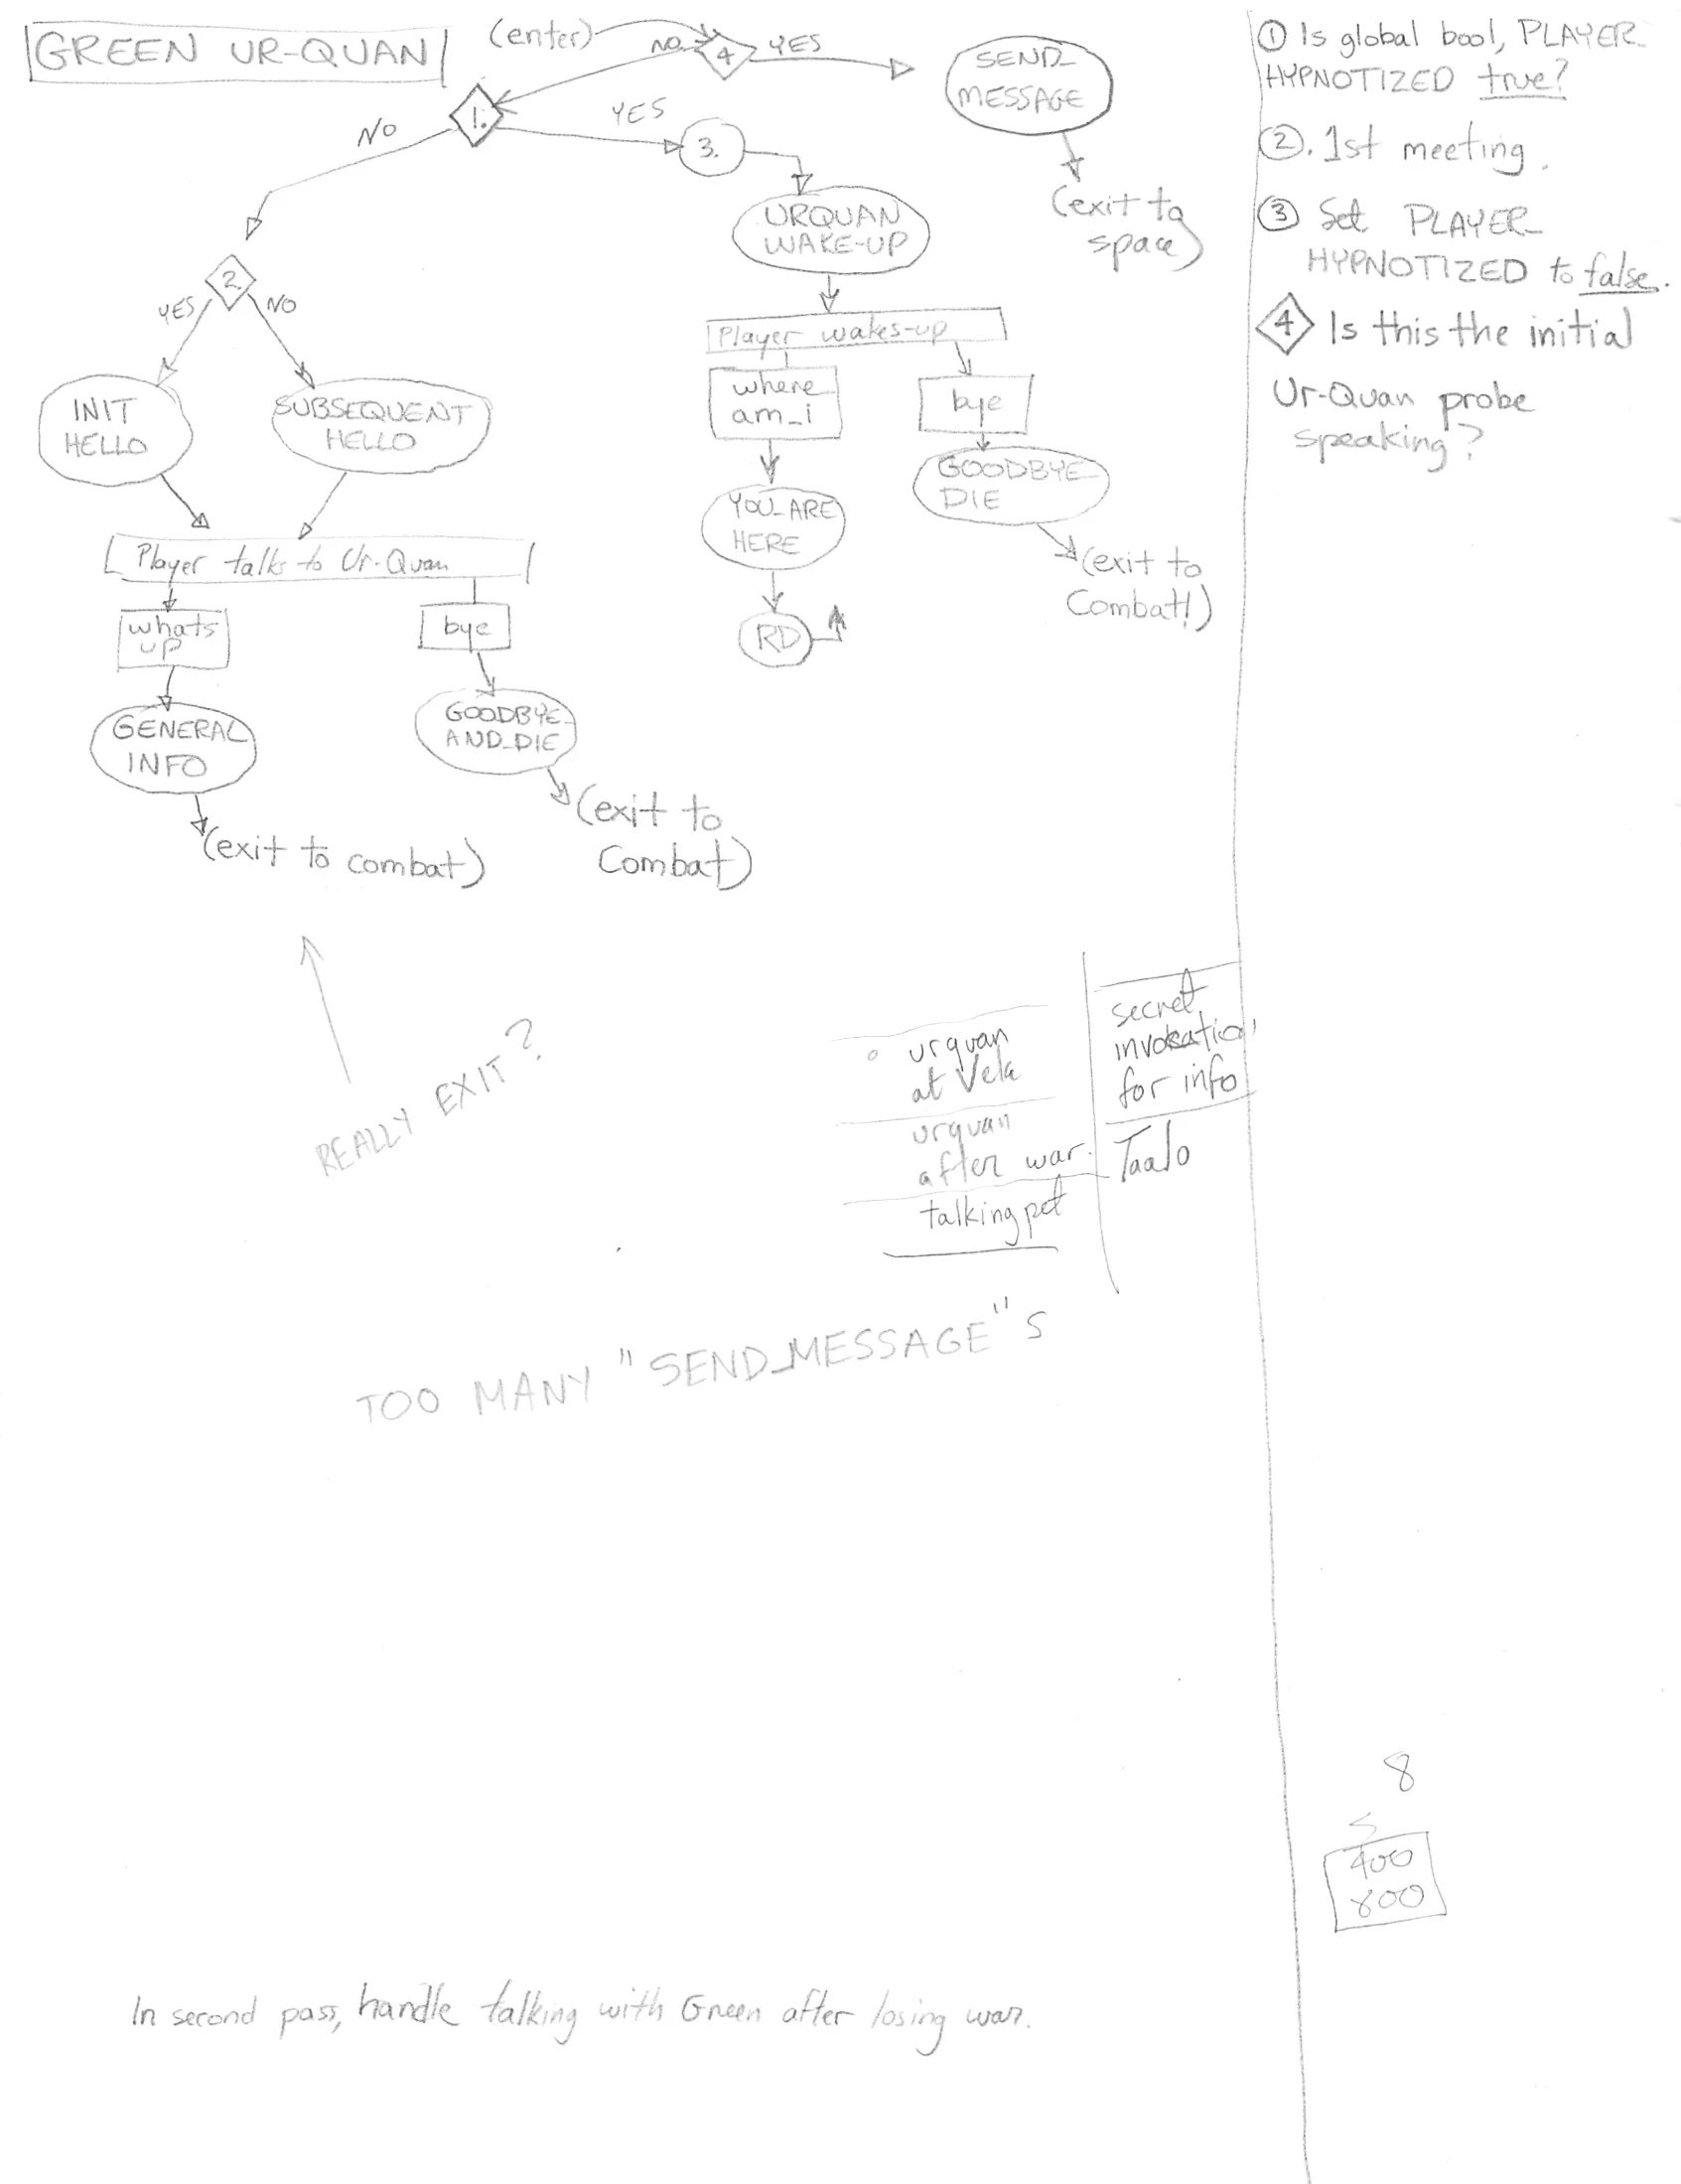 GREEN UR-QUAN
(enter)
NO
4
YES
SEND_
MESSAGE
(exit to
space)
1.
NO
YES
3.
URQUAN
WAKE-UP
Player wakes-up
where
am_i
bye
YOU_ARE
HERE
GOODBYE_
DIE
(exit to
Combat!)
RD
2.
YES
NO
INIT
HELLO
SUBSEQUENT
HELLO
Player talks to Ur-Quan
whats
up
bye
GENERAL
INFO
GOODBYE_
AND_DIE
(exit to combat)
(exit to
Combat)
REALLY EXIT?
urquan
at Vela
urquan
after war.
talking pet
secret
invokation
for info
Taalo
TOO MANY "SEND_MESSAGE"S
In second pass, handle talking with Green after losing war.
1 Is global bool, PLAYER_
HYPNOTIZED true?
2. 1st meeting.
3 Set PLAYER_
HYPNOTIZED to false.
4 Is this the initial
Ur-Quan probe
speaking?
8
400
800